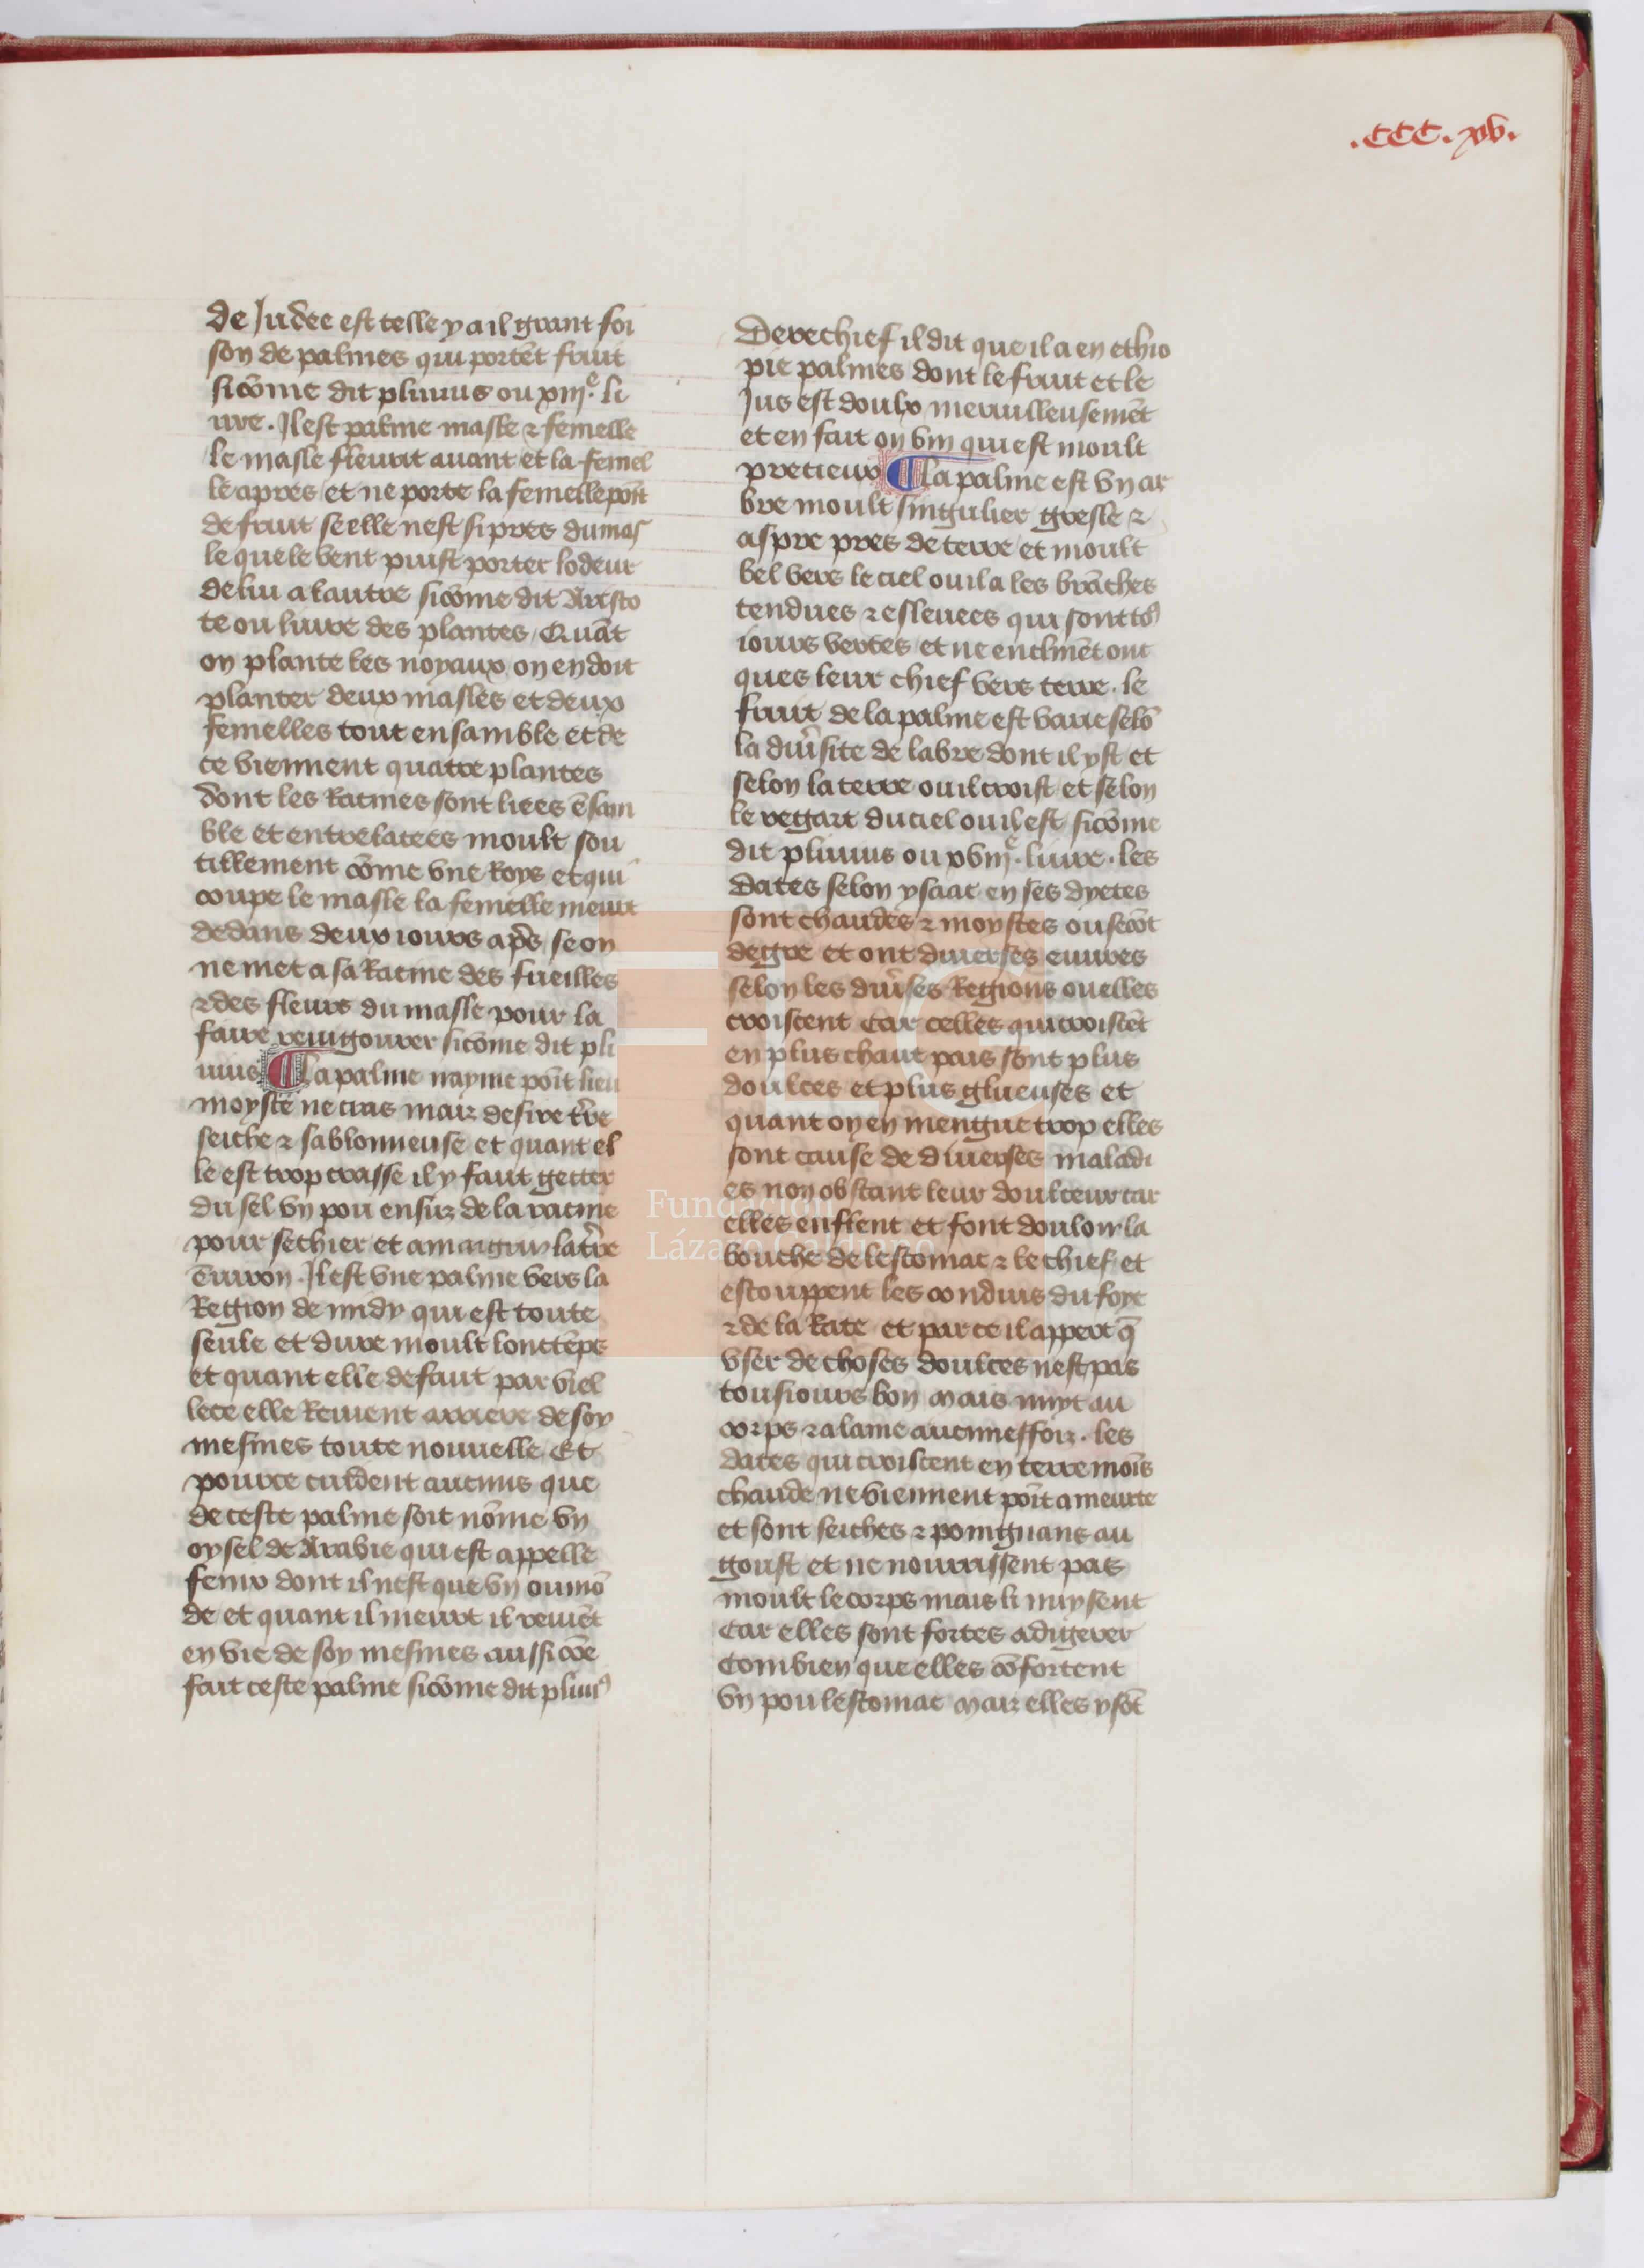 .CCC.xv.
de Judee est telle y a il grant foi
son de palmes qui portēt fruit
sicōme dit plinius ou xiijᵉ. li
ure. Il est palme masle ⁊ femelle
le masle fleurit auant et la femel
le apres et ne porte la femelle poīt
de fruit se elle nest si pres du mas
le que le vent puist porter lodeur
de lui a lautre sicōme dit Aristo
te ou liure des plantes / Quāt
on plante les noyaux on en doit
planter deux masles et deux
femelles tout ensamble et de
ce viennent quatre plantes
dont les Racines sont liees ēsam
ble et entrelacees moult sou
tillement cōme vne Roys et qui
coupe le masle la femelle meurt
dedans deux iours ap̄s se on
ne met a sa Racine des fueilles
⁊ des fleurs du masle pour la
faire reuigourer sicōme dit pli
nius ¶ La palme nayme poīt lieu
moyste ne cras maiz desire t̄re
seiche ⁊ sablonneuse et quant el
le est trop crasse il y faut getter
du sel vn pou ensuz de la racine
pour sechier et amaigrir la t̄re
ēuiron. Il est vne palme vers la
Region de midy qui est toute
seule et dure moult lonctēps
et quant elle defaut par viel
lece elle Reuient arriere de soy
mesmes toute nouuelle Et
pource cuident aucuns que
de ceste palme soit nōme vn
oysel de Arabie qui est appelle
fenix dont il nest que vn ou mō
de et quant il meurt il reuiēt
en vie de soy mesmes aussi cōe
fait ceste palme sicōme dit pliniꝰ
Derechief il dit que il a en ethio
pie palmes dont le fruit et le
Jus est doulx merueilleusemēt
et en fait on vin qui est moult
precieux ¶ La palme est vn ar
bre moult singulier gresle ⁊
aspre pres de terre et moult
bel vers le ciel ou il a les brāches
tendues ⁊ esleuees qui sont toꝰ
iours vertes et ne enclinēt onc
ques leur chief vers terre. le
fruit de la palme est varie selō
la diu̾site de labre dont il yst et
selon la terre ou il croist et selon
le regart du ciel ou il est sicōme
dit plinius ou xviijᵉ. liure. les
Dates selon ysaac en ses dyetes
sont chaudes ⁊ moystes ou secōt
degre et ont diuerses euures
selon les diu̾ses Regions ou elles
croiscent Car celles qui croiscēt
en plus chaut pais sont plus
doulces et plus glueuses et
quant on en mengue trop elles
sont cause de diuerses maladi
es non obstant leur doulceur car
elles enflent et font douloir la
bouche de lestomac ⁊ le chief et
estouppent les conduis du foye
⁊ de la Rate et par ce il appert q̄
vser de choses doulces nest pas
tousiours bon Mais nuyt au
corps ⁊ a lame aucuneffoiz. les
dates qui croiscent en terre moīs
chaude ne viennent poīt a meurte
et sont seiches ⁊ poingnans au
goust et ne nourrissent pas
moult le corps mais li nuysent
Car elles sont fortes a digerer
Combien que elles cōfortent
vn pou lestomac Maiz elles y sōt
Fundación
Lázaro Galdiano